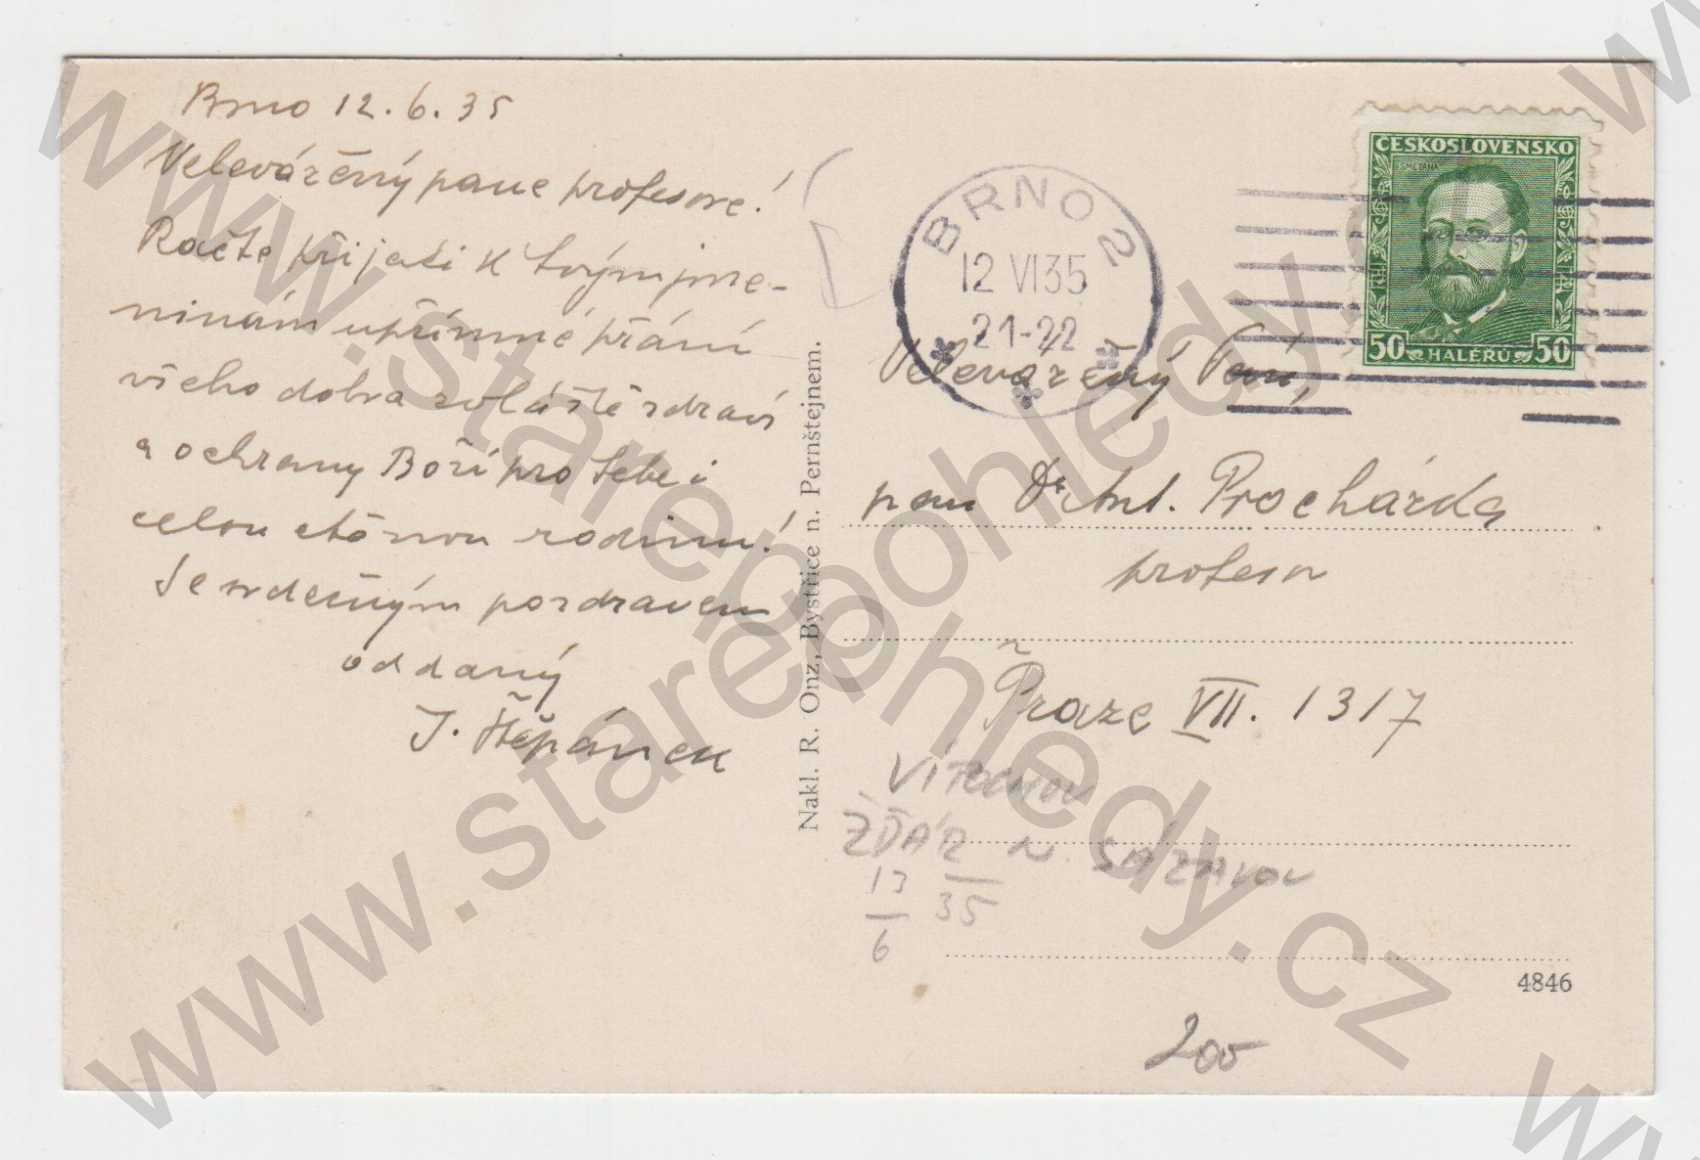 Brno 12.6.35
Velevážený pane profesore!
Račte přijati k tvým jme-
ninám upřímné přání
všeho dobra zvláště zdraví
a ochrany Boží pro tebe i
celou ctěnou rodinu!
Se srdečným pozdravem
oddaný
J. Štěpánek
Nakl. R. Onz, Bystřice n. Pernštejnem.
BRNO 2
12 VI 35
21-22
ČESKOSLOVENSKO
SMETANA
50 HALÉŘŮ 50
Velevážený Pan,
pan Dr Ant. Procházka
profesor
Praze VII. 1317
VÍTOCHOV
ŽĎÁR N. SÁZAVOU
13 35
6
4846
200
www.starepohledy.cz
www.starepohledy.cz